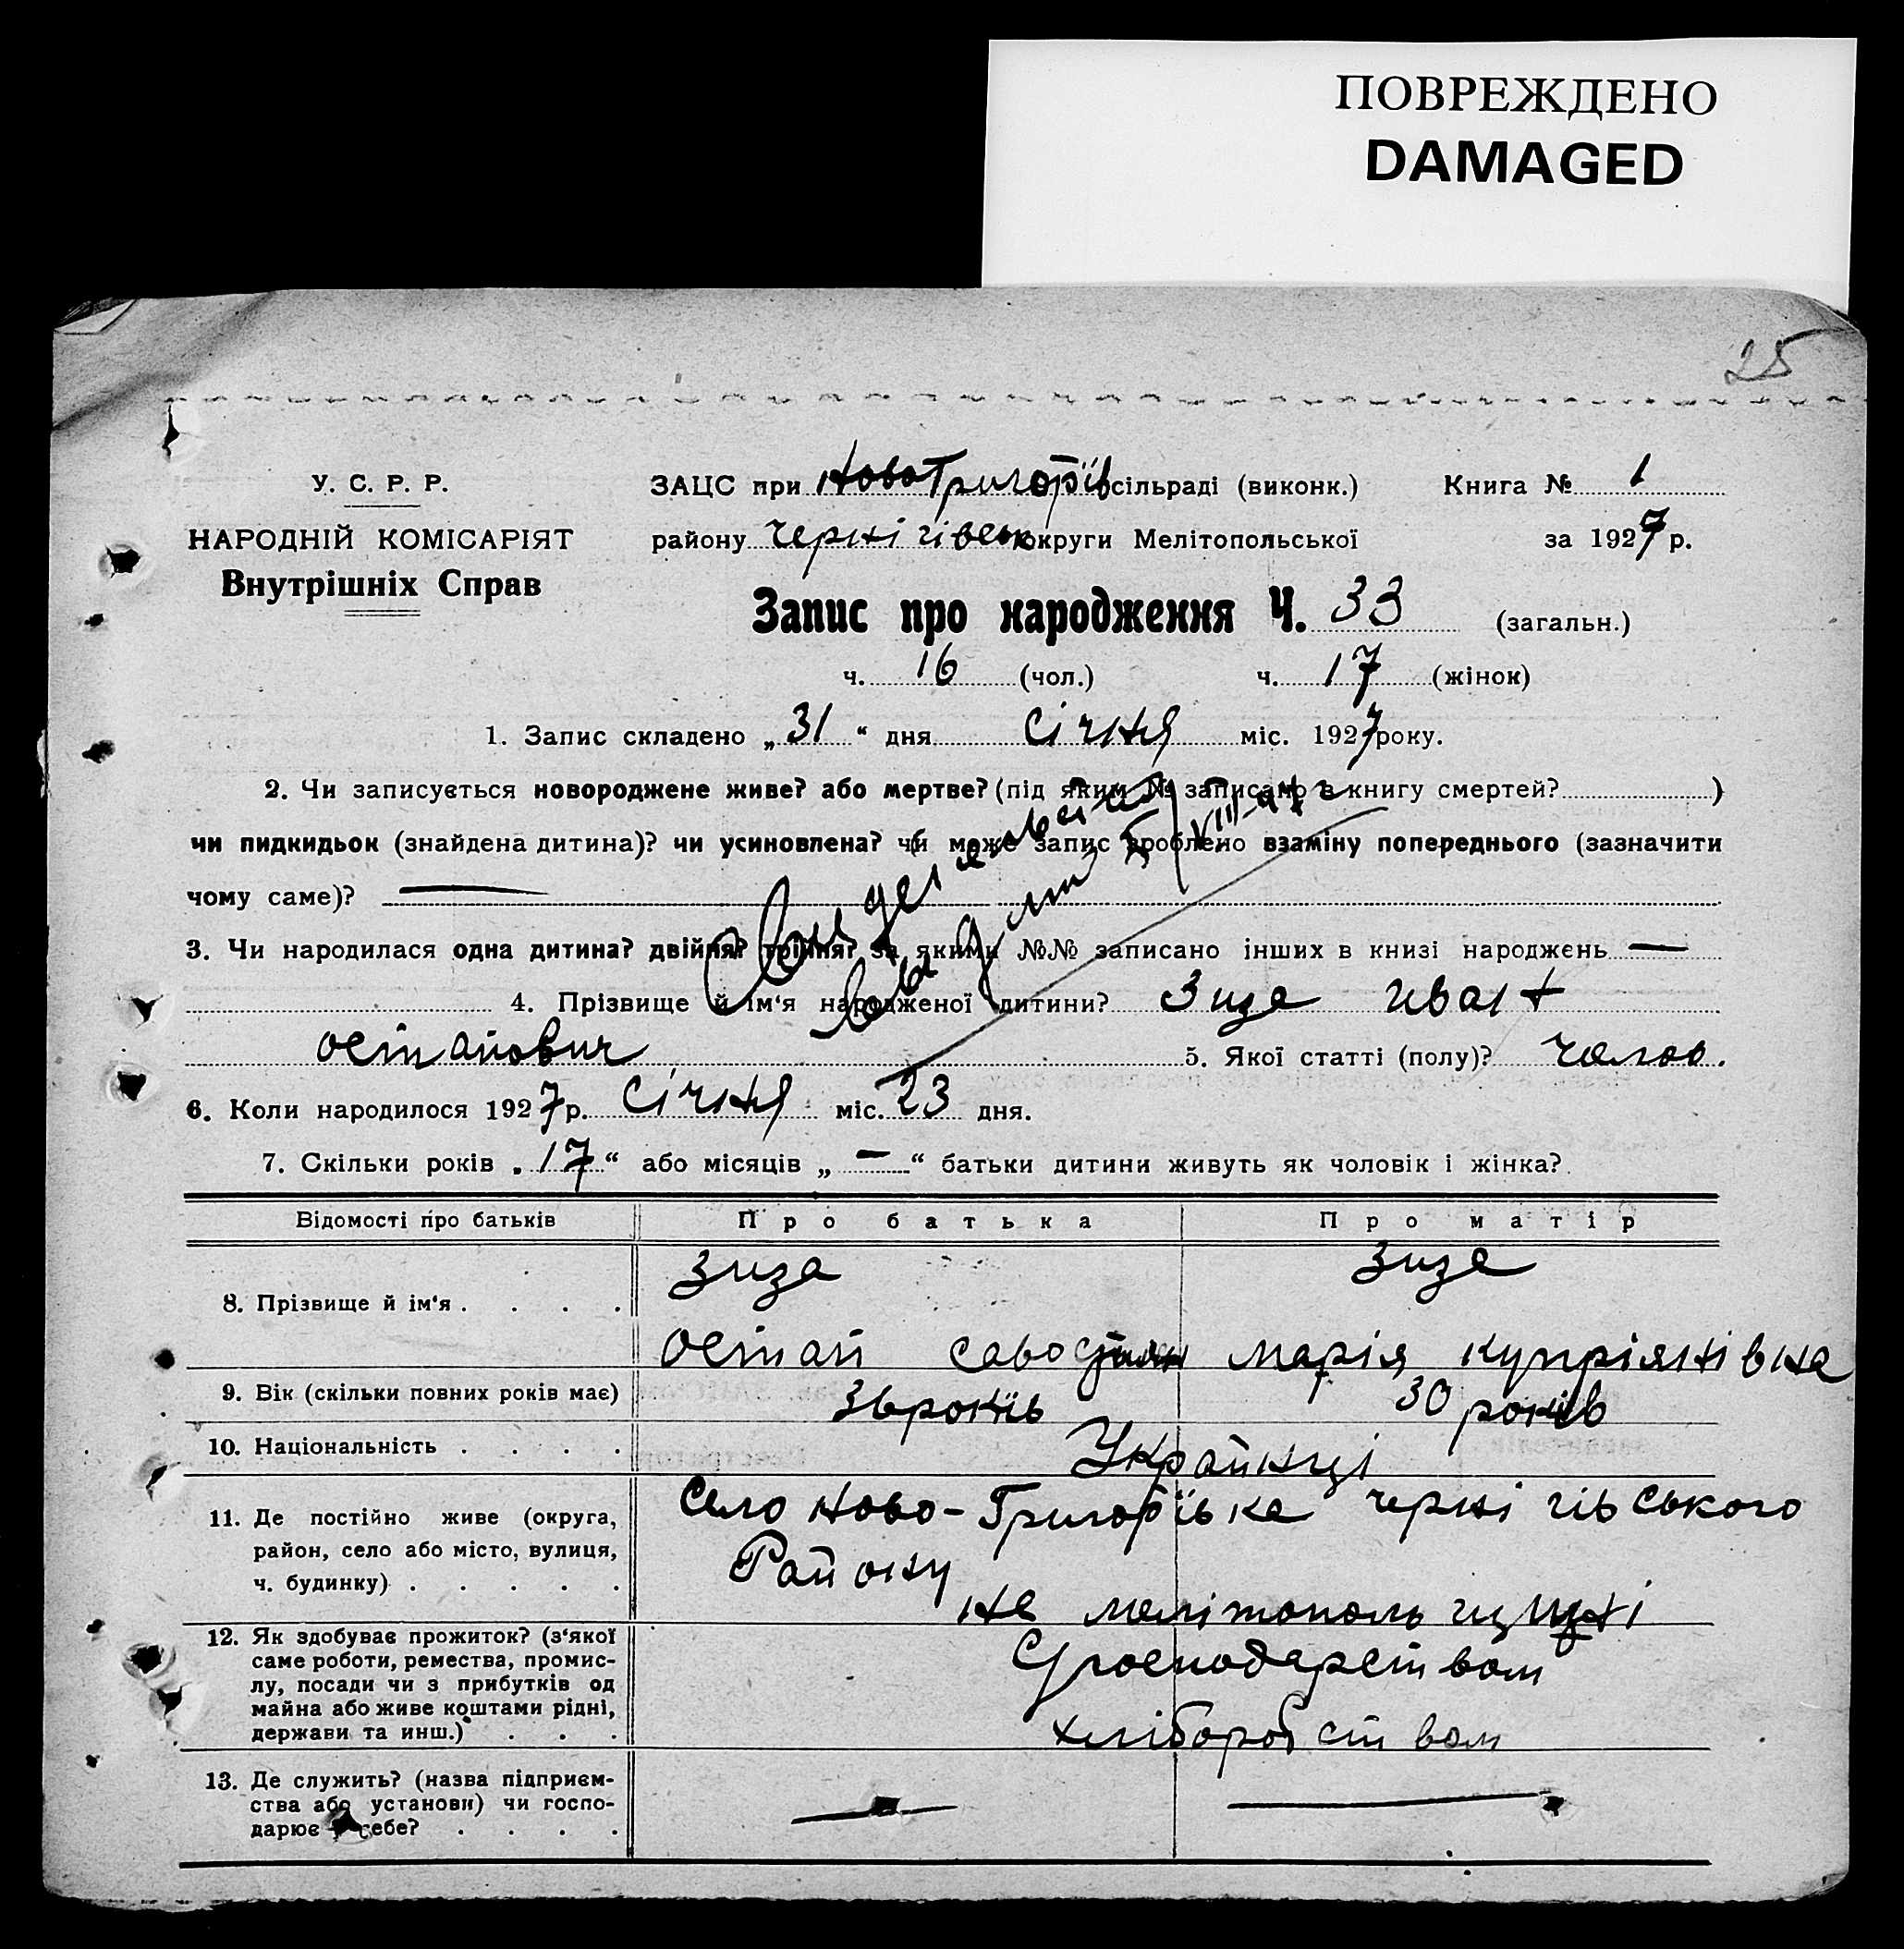 ПОВРЕЖДЕНО
DAMAGED
25
У. С. Р. Р.
НАРОДНІЙ КОМІСАРІЯТ
Внутрішніх Справ
ЗАЦС при НовоГригоріїв сільраді (виконк.) Книга № 1
району Чернігівськ округи Мелітопольської за 1927 р.
Запис про народження Ч. 33 (загальн.)
ч. 16 (чол.) ч. 17 (жінок)
1. Запис складено „31“ дня Січня міс. 1927 року.
2. Чи записується новороджене живе? або мертве? (під яким № записано в книгу смертей? )
чи пидкидьок (знайдена дитина)? чи усиновлена? чи може запис зроблено взаміну попереднього (зазначити
чому саме)? —
3. Чи народилася одна дитина? двійня? трійня? за якими №№ записано інших в книзі народжень —
4. Прізвище й ім‘я народженої дитини? Зиза Иван
Остапович 5. Якої статті (полу)? Чолов.
6. Коли народилося 1927 р. Січня міс. 23 дня.
7. Скільки років „17“ або місяців „—“ батьки дитини живуть як чоловік і жінка?
Відомості про батьків Про батька Про матір
8. Прізвище й ім‘я . . . . Зиза Зиза
Остап Савостян Марія Купріянівна
9. Вік (скільки повних років має) 36 років 30 років
10. Національність . . . . Українці
11. Де постійно живе (округа, район, село або місто, вулиця, ч. будинку) . . . . . Село Ново-Григоріївка Чернігівського
Району
на Мелітопольчищині
12. Як здобуває прожиток? (з‘якої саме роботи, ремества, промислу, посади чи з прибутків од майна або живе коштами рідні, держави та инш.) . . . Господарством
хліборобством
13. Де служить? (назва підприємства або установи) чи господарює у себе? . . . . — —